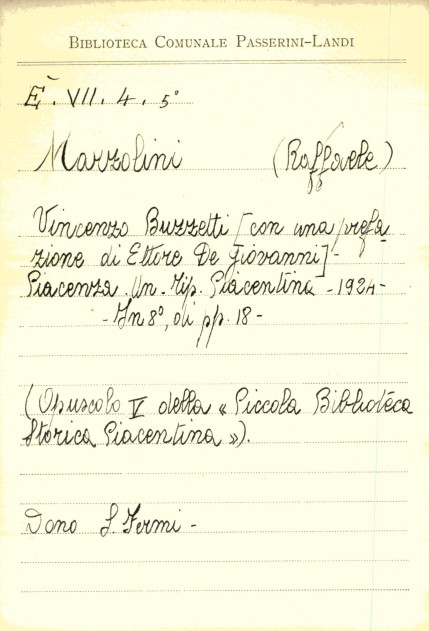 BIBLIOTECA COMUNALE PASSERINI-LANDI
È. VII. 4. 5°
Marzolini (Raffaele)
Vincenzo Buzzetti [con una prefa
zione di Ettore De Giovanni] -
Piacenza. Un. Tip. Piacentina - 1924 -
- In 8°, di pp. 18 -
(Opuscolo V della « Piccola Biblioteca
Storica Piacentina »).
Dono S. Fermi -